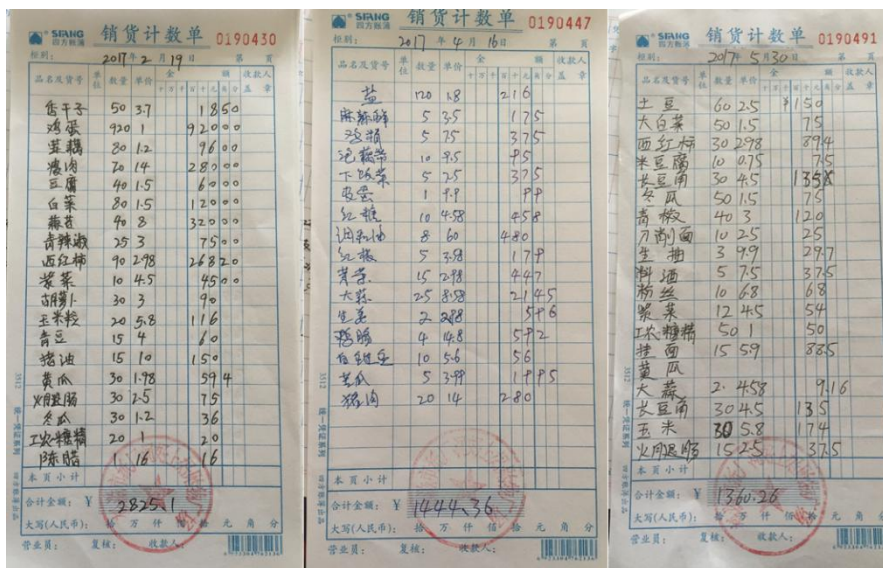 SIFANG 四方账簿 销货计数单 0190430
柜别： 2017年2月19日 第 页
品名及货号 单位 数量 单价 金额 收款人盖章
十万千百十元角分
香干子 50 3.7 18500
鸡蛋 920 1 92000
80 1.2 9600
猪肉 20 14 28000
豆腐 40 1.5 6000
白菜 80 1.5 12000
蒜苔 40 8 32000
青辣椒 25 3 7500
西红柿 90 2.98 26820
浆菜 10 4.5 4500
胡萝卜 30 3 90
玉米粒 20 5.8 116
青豆 15 4 60
猪油 15 10 150
黄瓜 30 1.98 594
火腿肠 30 2.5 75
冬瓜 30 1.2 36
工农糖精 20 1 20
陈醋 1 16 16
本页小计
合计金额： ¥ 2825.1
大写(人民币)： 拾 万 仟 佰 拾 元 角 分
营业员： 复核： 收款人：
SIFANG 四方账簿 销货计数单 0190447
柜别： 2017年4月16日 第 页
品名及货号 单位 数量 单价 金额 收款人盖章
十万千百十元角分
盐 120 1.8 216
5 3.5 175
鸡精 5 75 375
泡藕带 10 9.5 95
下饭菜 5 25 375
皮蛋 1 9.9 99
红糖 10 4.58 458
调和油 8 60 480
红椒 5 3.58 179
15 2.98 447
大蒜 25 8.58 2145
生姜 2 2.88 576
4 14.8 592
10 5.6 56
5 3.99 1995
猪肉 20 14 280
本页小计
合计金额： ¥ 1444.36
大写(人民币)： 拾 万 仟 佰 拾 元 角 分
营业员： 复核： 收款人：
SIFANG 四方账簿 销货计数单 0190491
柜别： 2017年5月30日 第 页
品名及货号 单位 数量 单价 金额 收款人盖章
十万千百十元角分
土豆 60 2.5 ¥150
大白菜 50 1.5 75
西红柿 30 2.98 894
米豆腐 10 0.75 7.5
长豆角 30 4.5 135
冬瓜 50 1.5 75
青椒 40 3 120
刀削面 10 2.5 25
生抽 3 9.9 29.7
料酒 5 7.5 37.5
粉丝 10 6.8 68
浆菜 12 4.5 54
工农糖精 50 1 50
挂面 15 5.9 88.5
黄瓜
大蒜 2. 4.58 9.16
长豆角 30 4.5 135
玉米 30 5.8 174
火腿肠 15 2.5 37.5
本页小计
合计金额： ¥ 1360.26
大写(人民币)： 拾 万 仟 佰 拾 元 角 分
营业员： 复核： 收款人：